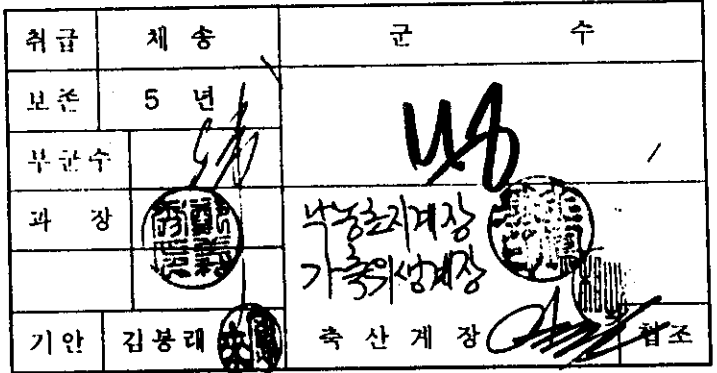 취급 체송 군 수
보존 5 년
부군수
과 장 낙농초지계장
가축위생계장
기안 김봉래 축산계장 협조